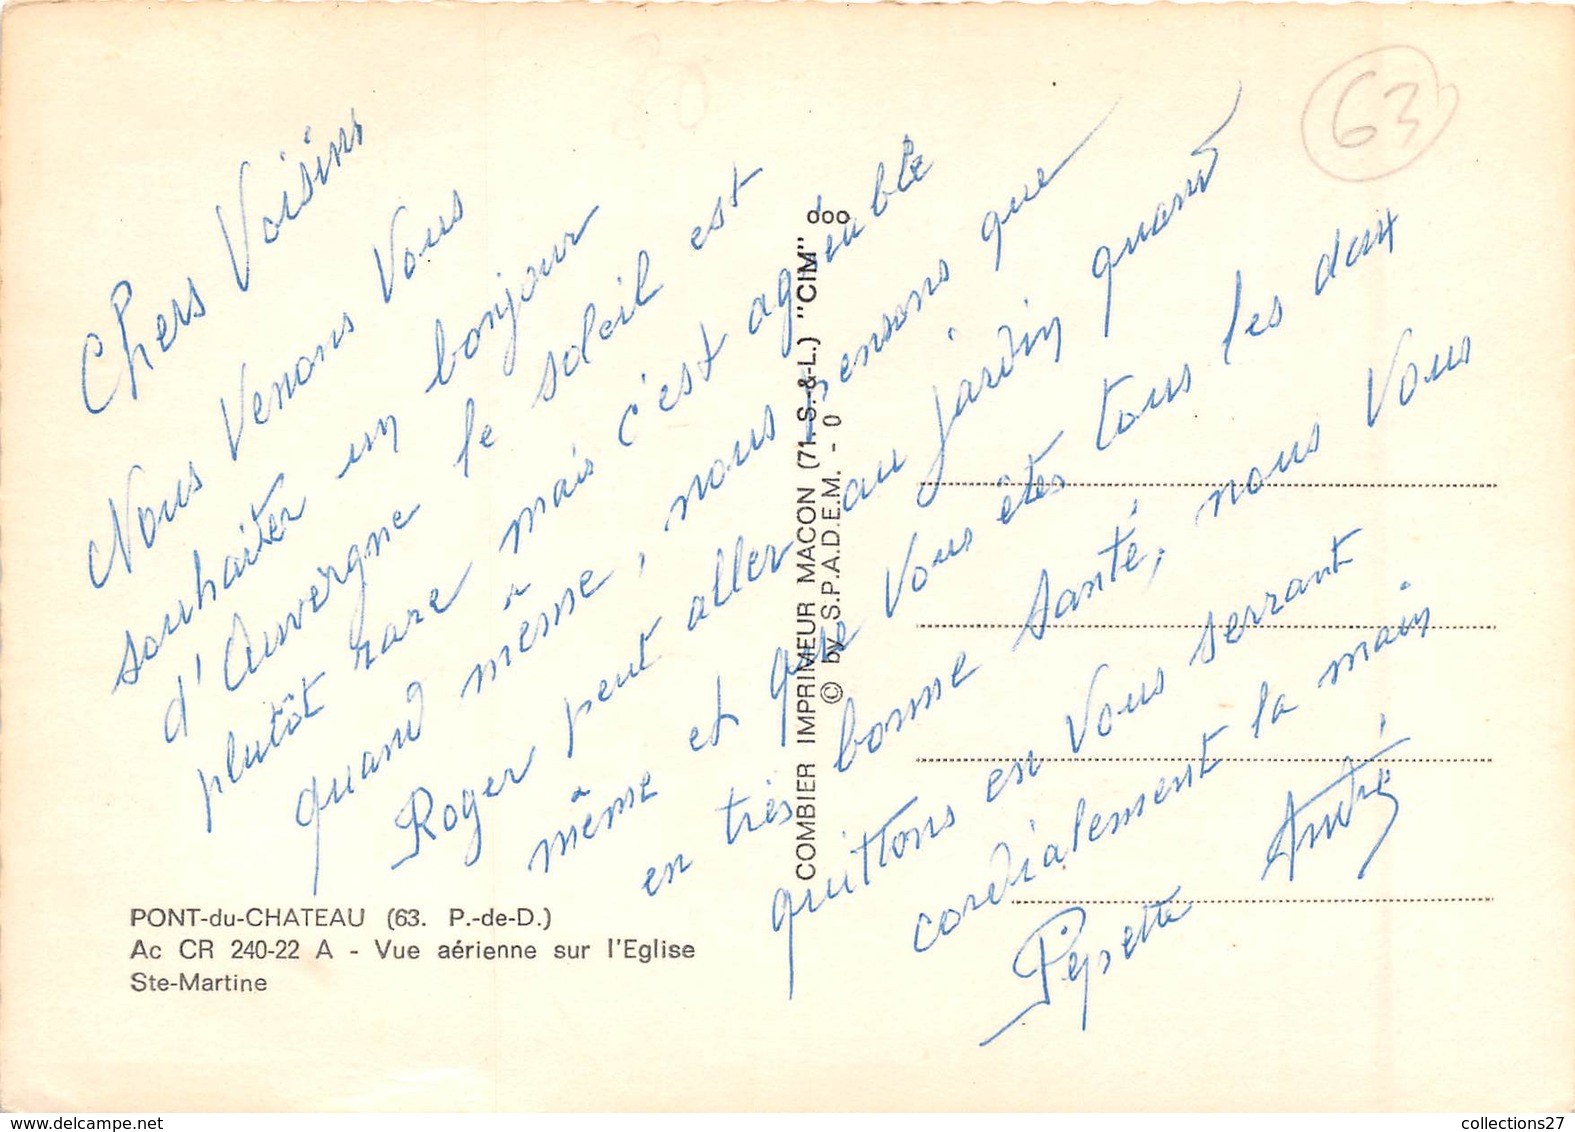 63
Chers Voisins
Nous Venons Vous
souhaiter un bonjour
d'Auvergne le soleil est
plutôt rare mais c'est agréable
quand même, nous pensons que
Roger peut aller au jardin quand
même et que Vous êtes tous les deux
en très bonne Santé, nous Vous
quittons en Vous serrant
cordialement la main
Pepette André
COMBIER IMPRIMEUR MACON (71. S.-&-L.) "CIM"
© by S.P.A.D.E.M. - 0
PONT-du-CHATEAU (63. P.-de-D.)
Ac CR 240-22 A - Vue aérienne sur l'Eglise
Ste-Martine
collections27